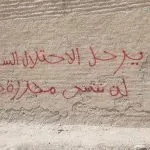 يرحل الاحتلال
لن ننسى مجزرة